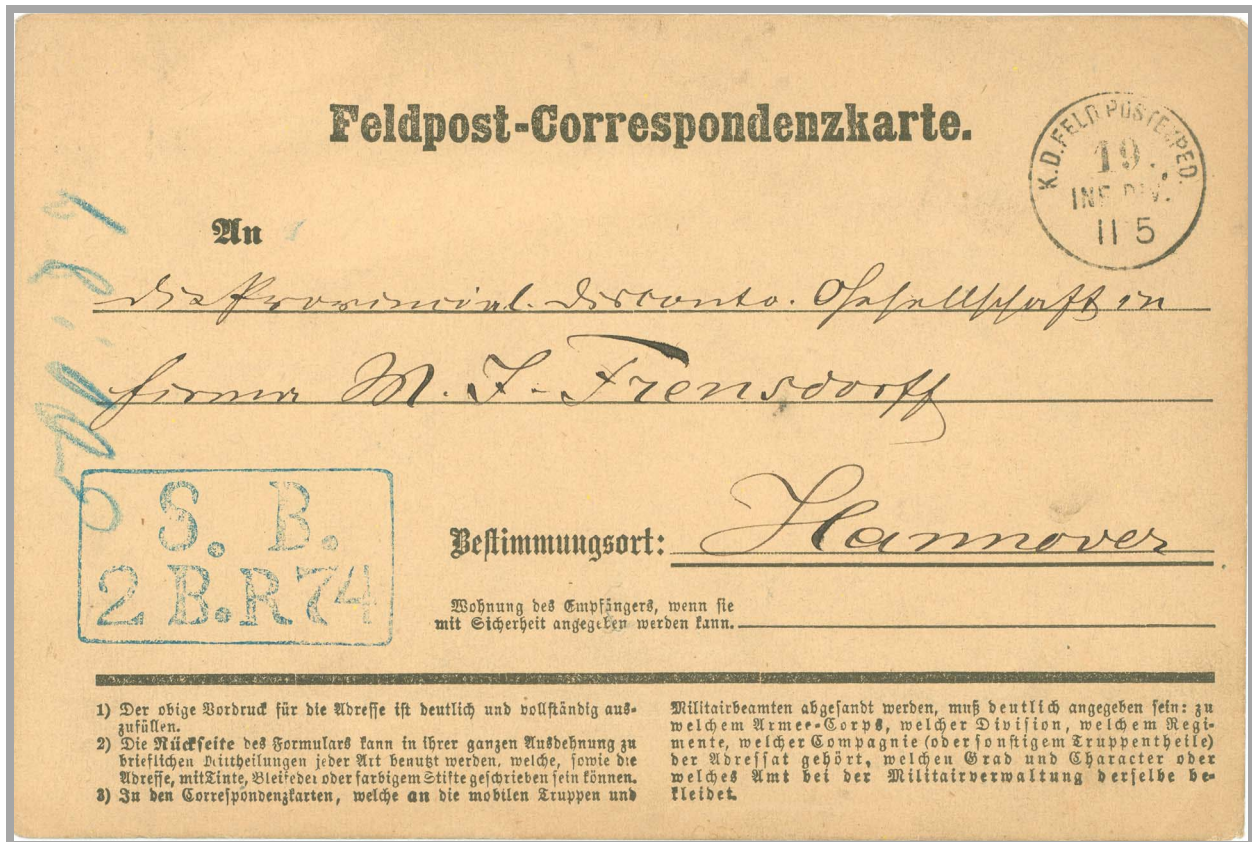 Feldpost-Correspondenzkarte.
K. D. FELD POSTEXPED.
19.
INF. DIV.
11 5
An
die Provincial. Disconto. Gesellschaft in
firma M. J. Frensdorff
S. B.
2 B. R 74
Bestimmungsort: Hannover
Wohnung des Empfängers, wenn sie
mit Sicherheit angegeben werden kann.
1) Der obige Vordruck für die Adresse ist deutlich und vollständig aus-
zufüllen.
2) Die Rückseite des Formulars kann in ihrer ganzen Ausdehnung zu
brieflichen Mittheilungen jeder Art benutzt werden, welche, sowie die
Adresse, mit Tinte, Bleifeder oder farbigem Stifte geschrieben sein können.
3) In den Correspondenzkarten, welche an die mobilen Truppen und
Militairbeamten abgesandt werden, muß deutlich angegeben sein: zu
welchem Armee-Corps, welcher Division, welchem Regi-
mente, welcher Compagnie (oder sonstigem Truppentheile)
der Adressat gehört, welchen Grad und Character oder
welches Amt bei der Militairverwaltung derselbe be-
kleidet.